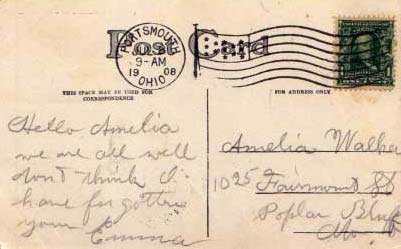 Post Card
PORTSMOUTH
JUL
9-AM
19 08
OHIO
THIS SPACE MAY BE USED FOR
CORRESPONDENCE
FOR ADDRESS ONLY
Hello Amelia
we are all well
don't think I
have forgotten
you Emma
Amelia Walker
1025 Fairmount St
Poplar Bluff
Mo
1